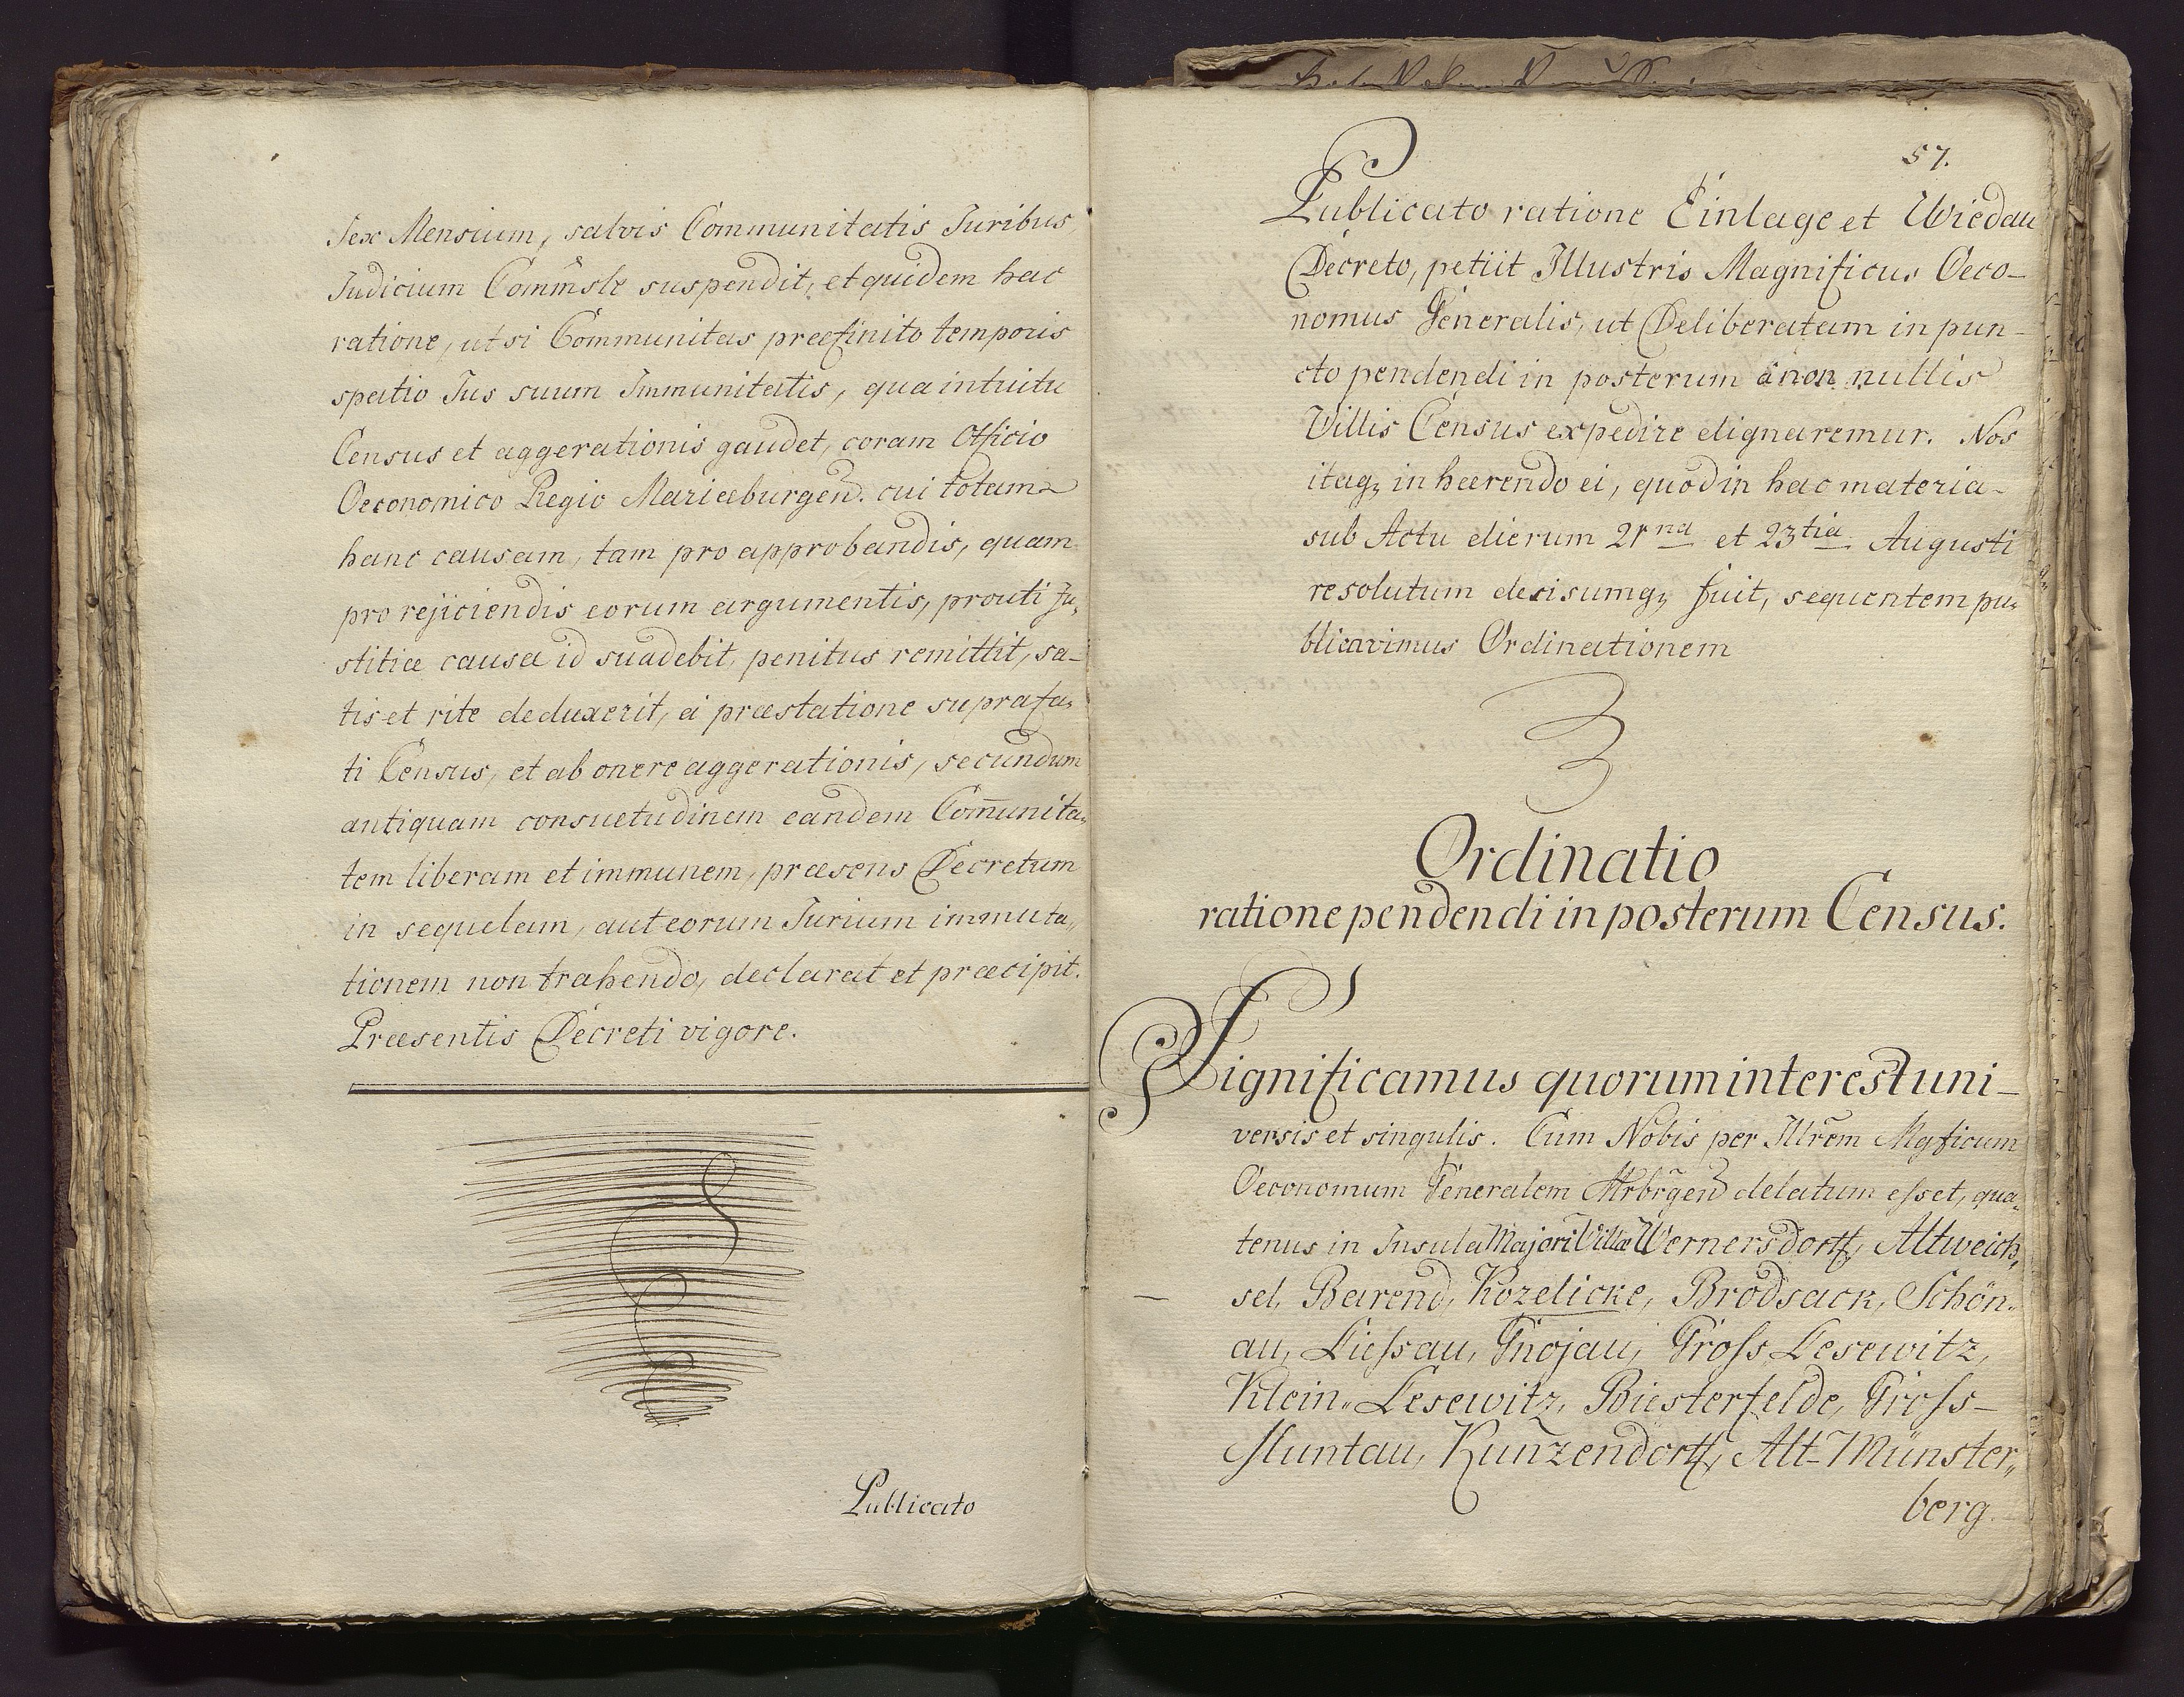 Sex Mensium, salvis Communitatis Juribus
Judicium Commsle suspendit, et quidem hac
ratione, ut si Communitas præfinito temporis
spatio Jus suum Immunitatis, qua intuitu
Census et aggerationis gaudet, coram Officio
Oeconomico Regio Mariæburgen. cui totam
hanc causam, tam pro approbandis, quam
pro rejiciendis eorum argumentis, prouti Ju„
stitiæ causa id suadebit, penitus remittit, sa-
tis et rite deduxerit, a præstatione suprafa„
ti Census, et ab onere aggerationis, secundum
antiquam consuetudinem eandem Com̄unita„
tem liberam et immunem, præsens Decretum
in sequelam, aut eorum Jurium immuta„
tionem non trahendo, declarat et præcipit.
Præsentis Decreti vigore.
Publicato
57.
Publicato ratione Einlage et Wiedau
Decreto, petiit Illustris Magnificus Oeco-
nomus Generalis, ut Deliberatam in pun-
cto pendendi in posterum à non nullis
Villis Census expedire dignaremur. Nos
itaq, in hærendo ei, quod in hac materia
sub Actu dierum 21na et 23tia Augusti
resolutum decisumq, fuit, sequentem pu„
blicavimus Ordinationem
Ordinatio
ratione pendendi in posterum Census.
Significamus quorum interest uni-
versis et singulis. Cum Nobis per Illrem Mgficum
Oeconomum Generalem Mrbrgen delatum esset, qua„
tenus in Insula Majori Villæ Wernersdorff, Altweich„
sel, Barend, Kozelicke, Brodsack, Schön„
au, Liessau, Gnojau, Gross Lesewitz,
Klein„ Lesewitz, Biesterfelde, Gross-
Muntau, Kunzendorff, Alt-Münster„
berg.